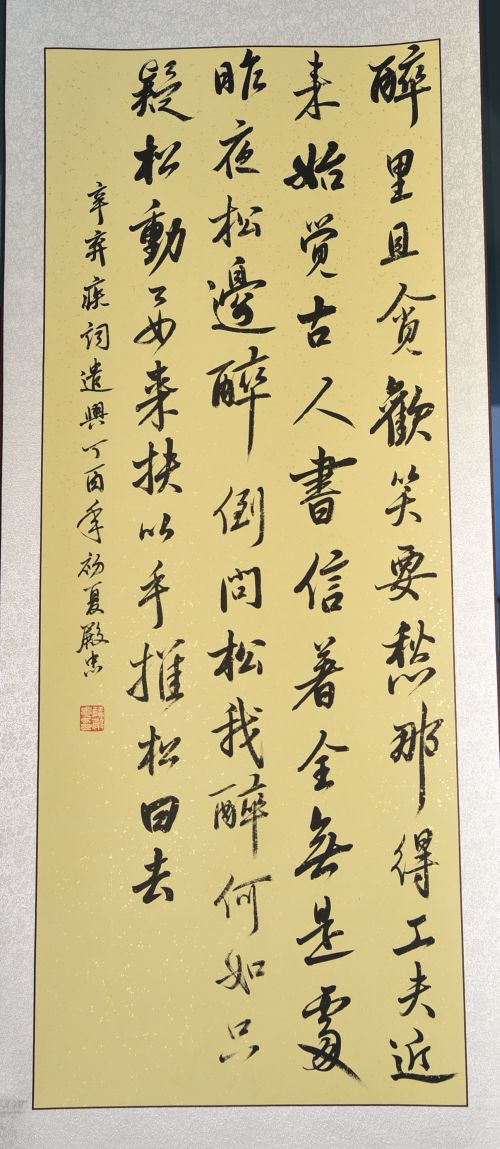 醉里且贪歡笑要愁那得工夫近
来始觉古人書信著全無是處
昨夜松邊醉倒问松我醉何如只
疑松動要来扶以手推松曰去
辛弃疾詞遣興丁酉年初夏殿忠